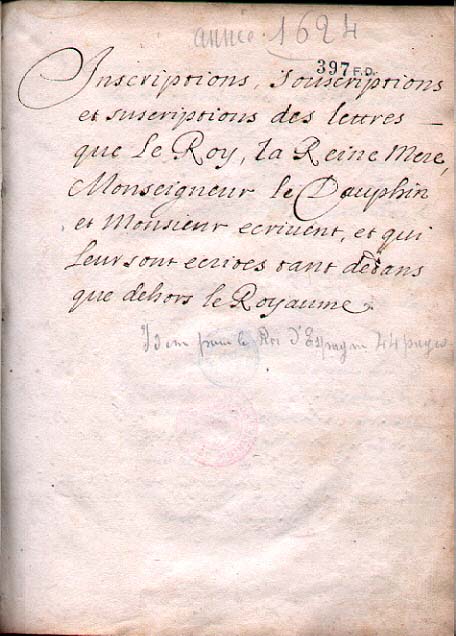 année 1624
397 F.D.
Inscriptions, souscriptions
et suscriptions des lettres
que Le Roy, la Reine Mere,
Monseigneur le Dauphin
et Monsieur ecrivent, et qui
Leur sont ecrites tant dedans
que dehors le Royaume.
Idem pour le Roi d'Espagne 44 pages